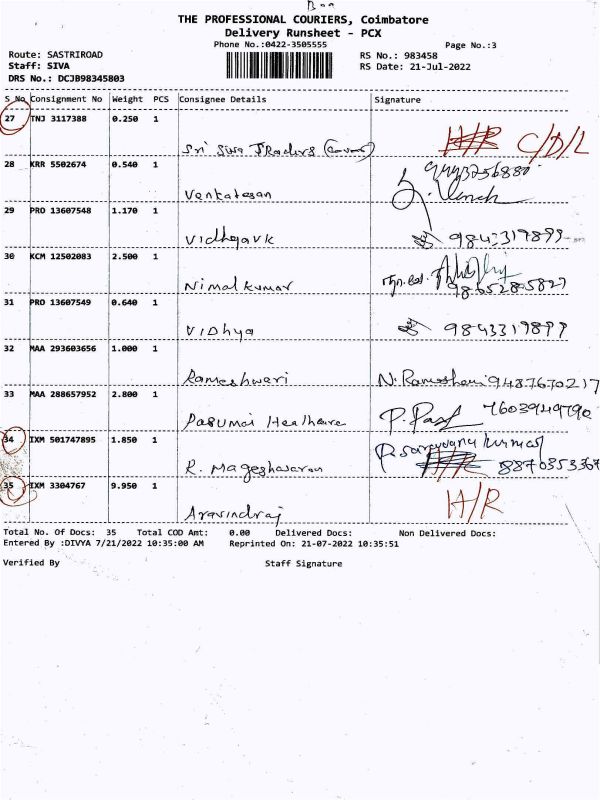 THE PROFESSIONAL COURIERS, Coimbatore
Delivery Runsheet - PCX
Phone No.:0422-3505555
Page No.:3
Route: SASTRIROAD
RS No.: 983458
Staff: SIVA
RS Date: 21-Jul-2022
DRS No.: DCJB98345803
S No Consignment No Weight PCS Consignee Details Signature
27 TNJ 3117388 0.250 1
Sri Siva Traders (Cover) H/R C/D/L
28 KRR 5502674 0.540 1
Venkatesan
29 PRO 13607548 1.170 1
Vidhyavk 9843319899
30 KCM 12502083 2.500 1
Nimalkumar
31 PRO 13607549 0.640 1
Vidhya 9843319899
32 MAA 293603656 1.000 1
Rameshwari 9487670217
33 MAA 288657952 2.800 1
Pasumai Healthcare 7603949790
34 IXM 501747895 1.850 1
R. Mageshwaran 8870353367
35 IXM 3304767 9.950 1
Aravindraj H/R
Total No. Of Docs: 35 Total COD Amt: 0.00 Delivered Docs: Non Delivered Docs:
Entered By :DIVYA 7/21/2022 10:35:00 AM Reprinted On: 21-07-2022 10:35:51
Verified By Staff Signature